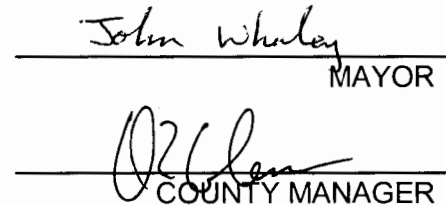 John Whaley
MAYOR
COUNTY MANAGER